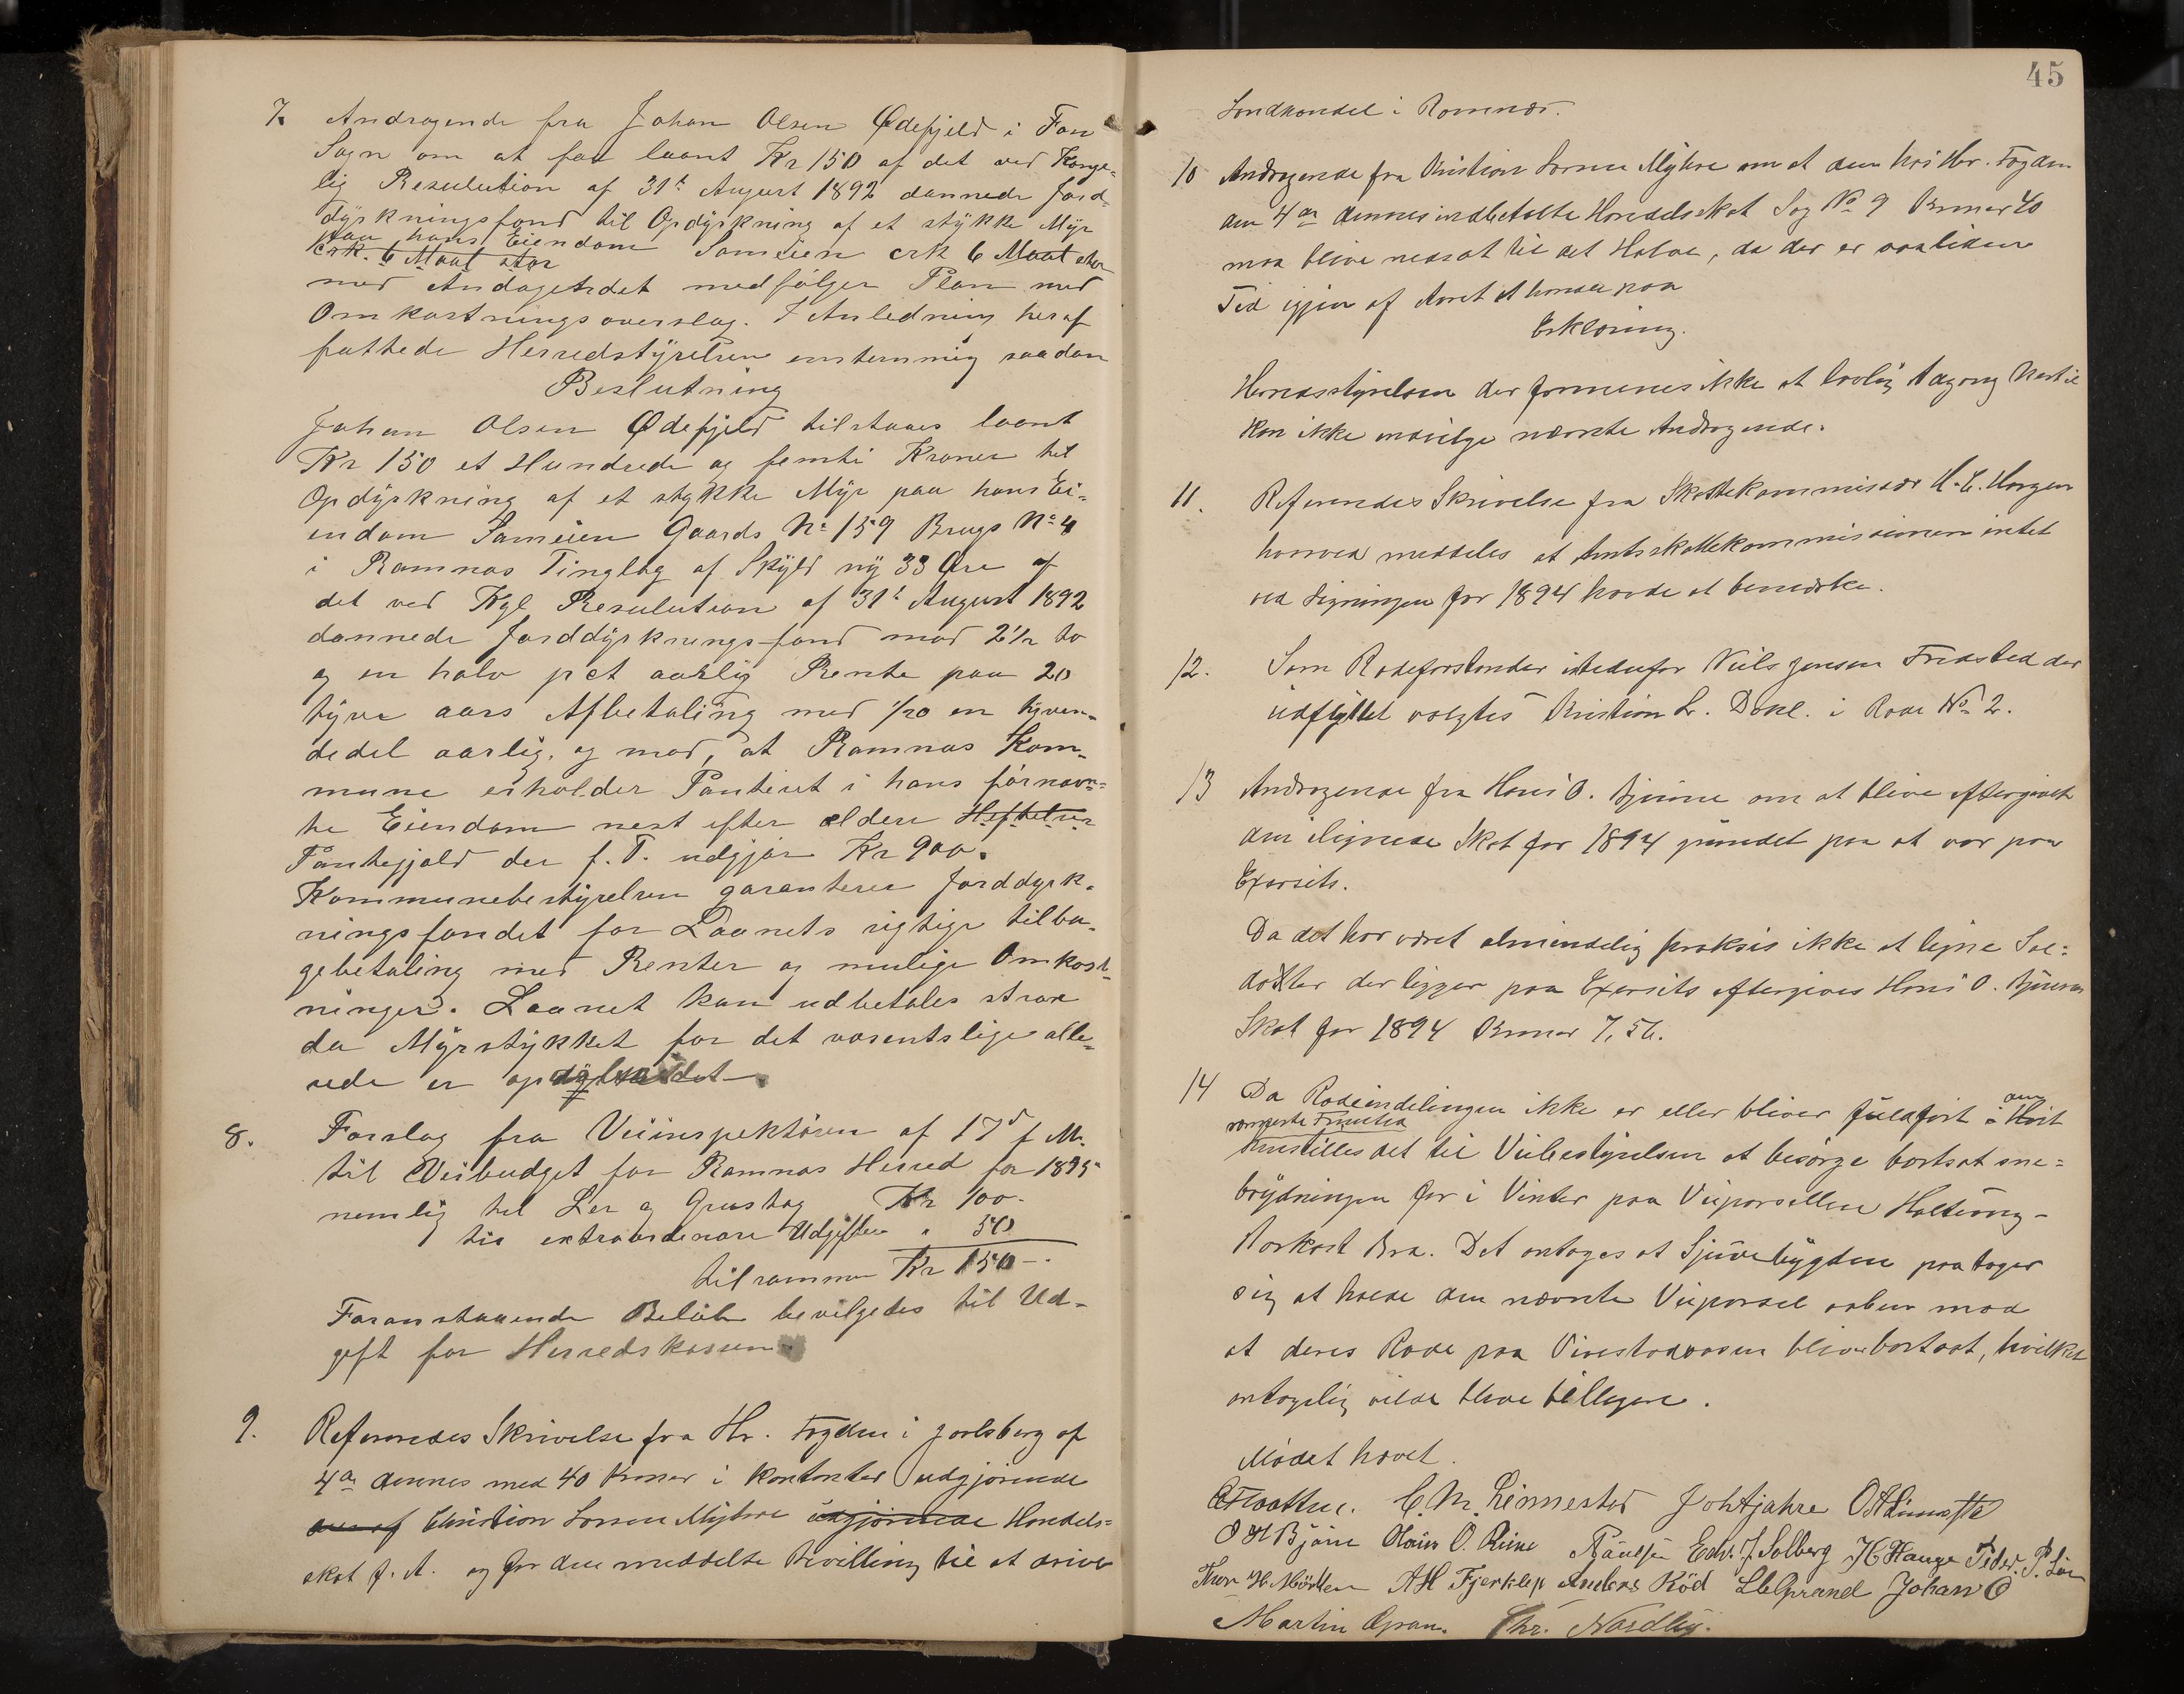 7. Andragende fra Johan Olsen Ødefjeld i Fon
Sogn om at faa laant Kr 150 af det ved Konge-
lig Resulution af 31t August 1892 dannede Jord-
dyrkningsfond til Opdyrkning af et stykke Myr
paa hans Eiendom Sameien crk 6 Maal stor
crk. 6 Maal stor
med Andagetrdet medfølger Plan med
Omkostningsoverslag. I Anledning heraf
fattede Herredstyrelsen enstemmig saadan
Beslutning
Johan Olsen Ødefjeld tilstaaes laant
Kr 150 et Hundrede og femti Kroner til
Opdyrkning af et stykke Myr paa hans Ei-
endom Sameien Gaards No 159 Brugs No 4
i Ramnas Tinglag af Skyld ny 33 Øre af
det ved Kgl Resulution af 31t August 1892
dannede Jorddyrkningsfond mod 2 1/2 to
og en halv pct aarlig Rente paa 20
tyve aars Afbetaling med 1/20 en tyven-
dedel aarlig, og mod, at Ramnas Kom-
mune erholder Panteret i hans førnævn-
te Eiendom nest efter eldere Heftelser
Pantegjæld der f. T. udgjør Kr 900.
Kommunebestyrelsen garanterer Jorddyrk-
ningsfondet for Laanets rigtige tilba-
gebetaling med Renter og mulige Omkost-
ninger. Laanet kan udbetales strax
da Myrstykket for det vasentslige alle-
rede er op
8. Forslag fra Veiinspektøren af 17d f. M.
til Veibudget for Ramnas Herred for 1895
nemlig til Ler og Grustag Kr 100.
til extraordenare Udgifter " 50
tilsammen Kr 150 -.
Foranstaaende Beløb bevilgedes til Ud-
gift for Herredskassen
9. Refereredes Skrivelse fra Hr. Fogden i Jarlsberg af
4de dennes med 40 Kroner i Kontanter udgjørende
den af Christian Larsen Myhre udgjørende Handels-
skat f. A. og for den meddelte Bevilling til at drive
45
Landhandel i Ramnæs.
10 Andragende fra Kristian Larsen Myhre om at den hos Hr. Fogden
den 4de dennes indbetalte Handelsskat Sag No 9 Kroner 40
maa blive nedsat til det Halve, da der er saaliden
Tid igjen af Aaret at handle paa
Erklæring.
Herredsstyrelsen der formenes ikke at lovlig Adgang hertil
kan ikke indvilge nævnte Andragende.
11. Refereredes Skrivelse fra Skattekommisær H. E. Horgen
hvorved meddeles at Amtsskattekommissionen intet
ved Ligningen for 1894 havde at bemærke.
12. Som Rodeforstander istedenfor Niels Jensen Fredsted der
udflyttet valgtes Kristian L. i Rode No 2.
13 Andragende fra Hans O. Bjørne om at blive eftergivet
den ilignede Skat for 1894 grundet paa at var paa
Exersits.
Da det har været almindelig praksis ikke at ligne Sol-
datter der ligger paa Exersits eftergives Hans O. Bjørnes
Skat for 1894 Kroner 7,56.
14 Da Rodeindelingen ikke er eller bliver fuldført i Høst
henstilles det til Veibestyrelsen at besørge bortsat sne-
brøydningen for i Vinter paa Veiparsellen
Bra. Det antages at Sjuvebygden paatager
sig at holde den nævnte Veiparsel aaben mod
at deres Rode paa bliver bortsat, hvilket
antagelig vilde blive billigere.
Mødet hævet.
C. M. Linnestad Joh Afjahre
O H Bjørn Hans O. Edv. J. Solberg H Hauge Peder. P.
Thor H. A H Fjerklep Anders Kød Johan O
Martin Gran. Chr. Nordby.